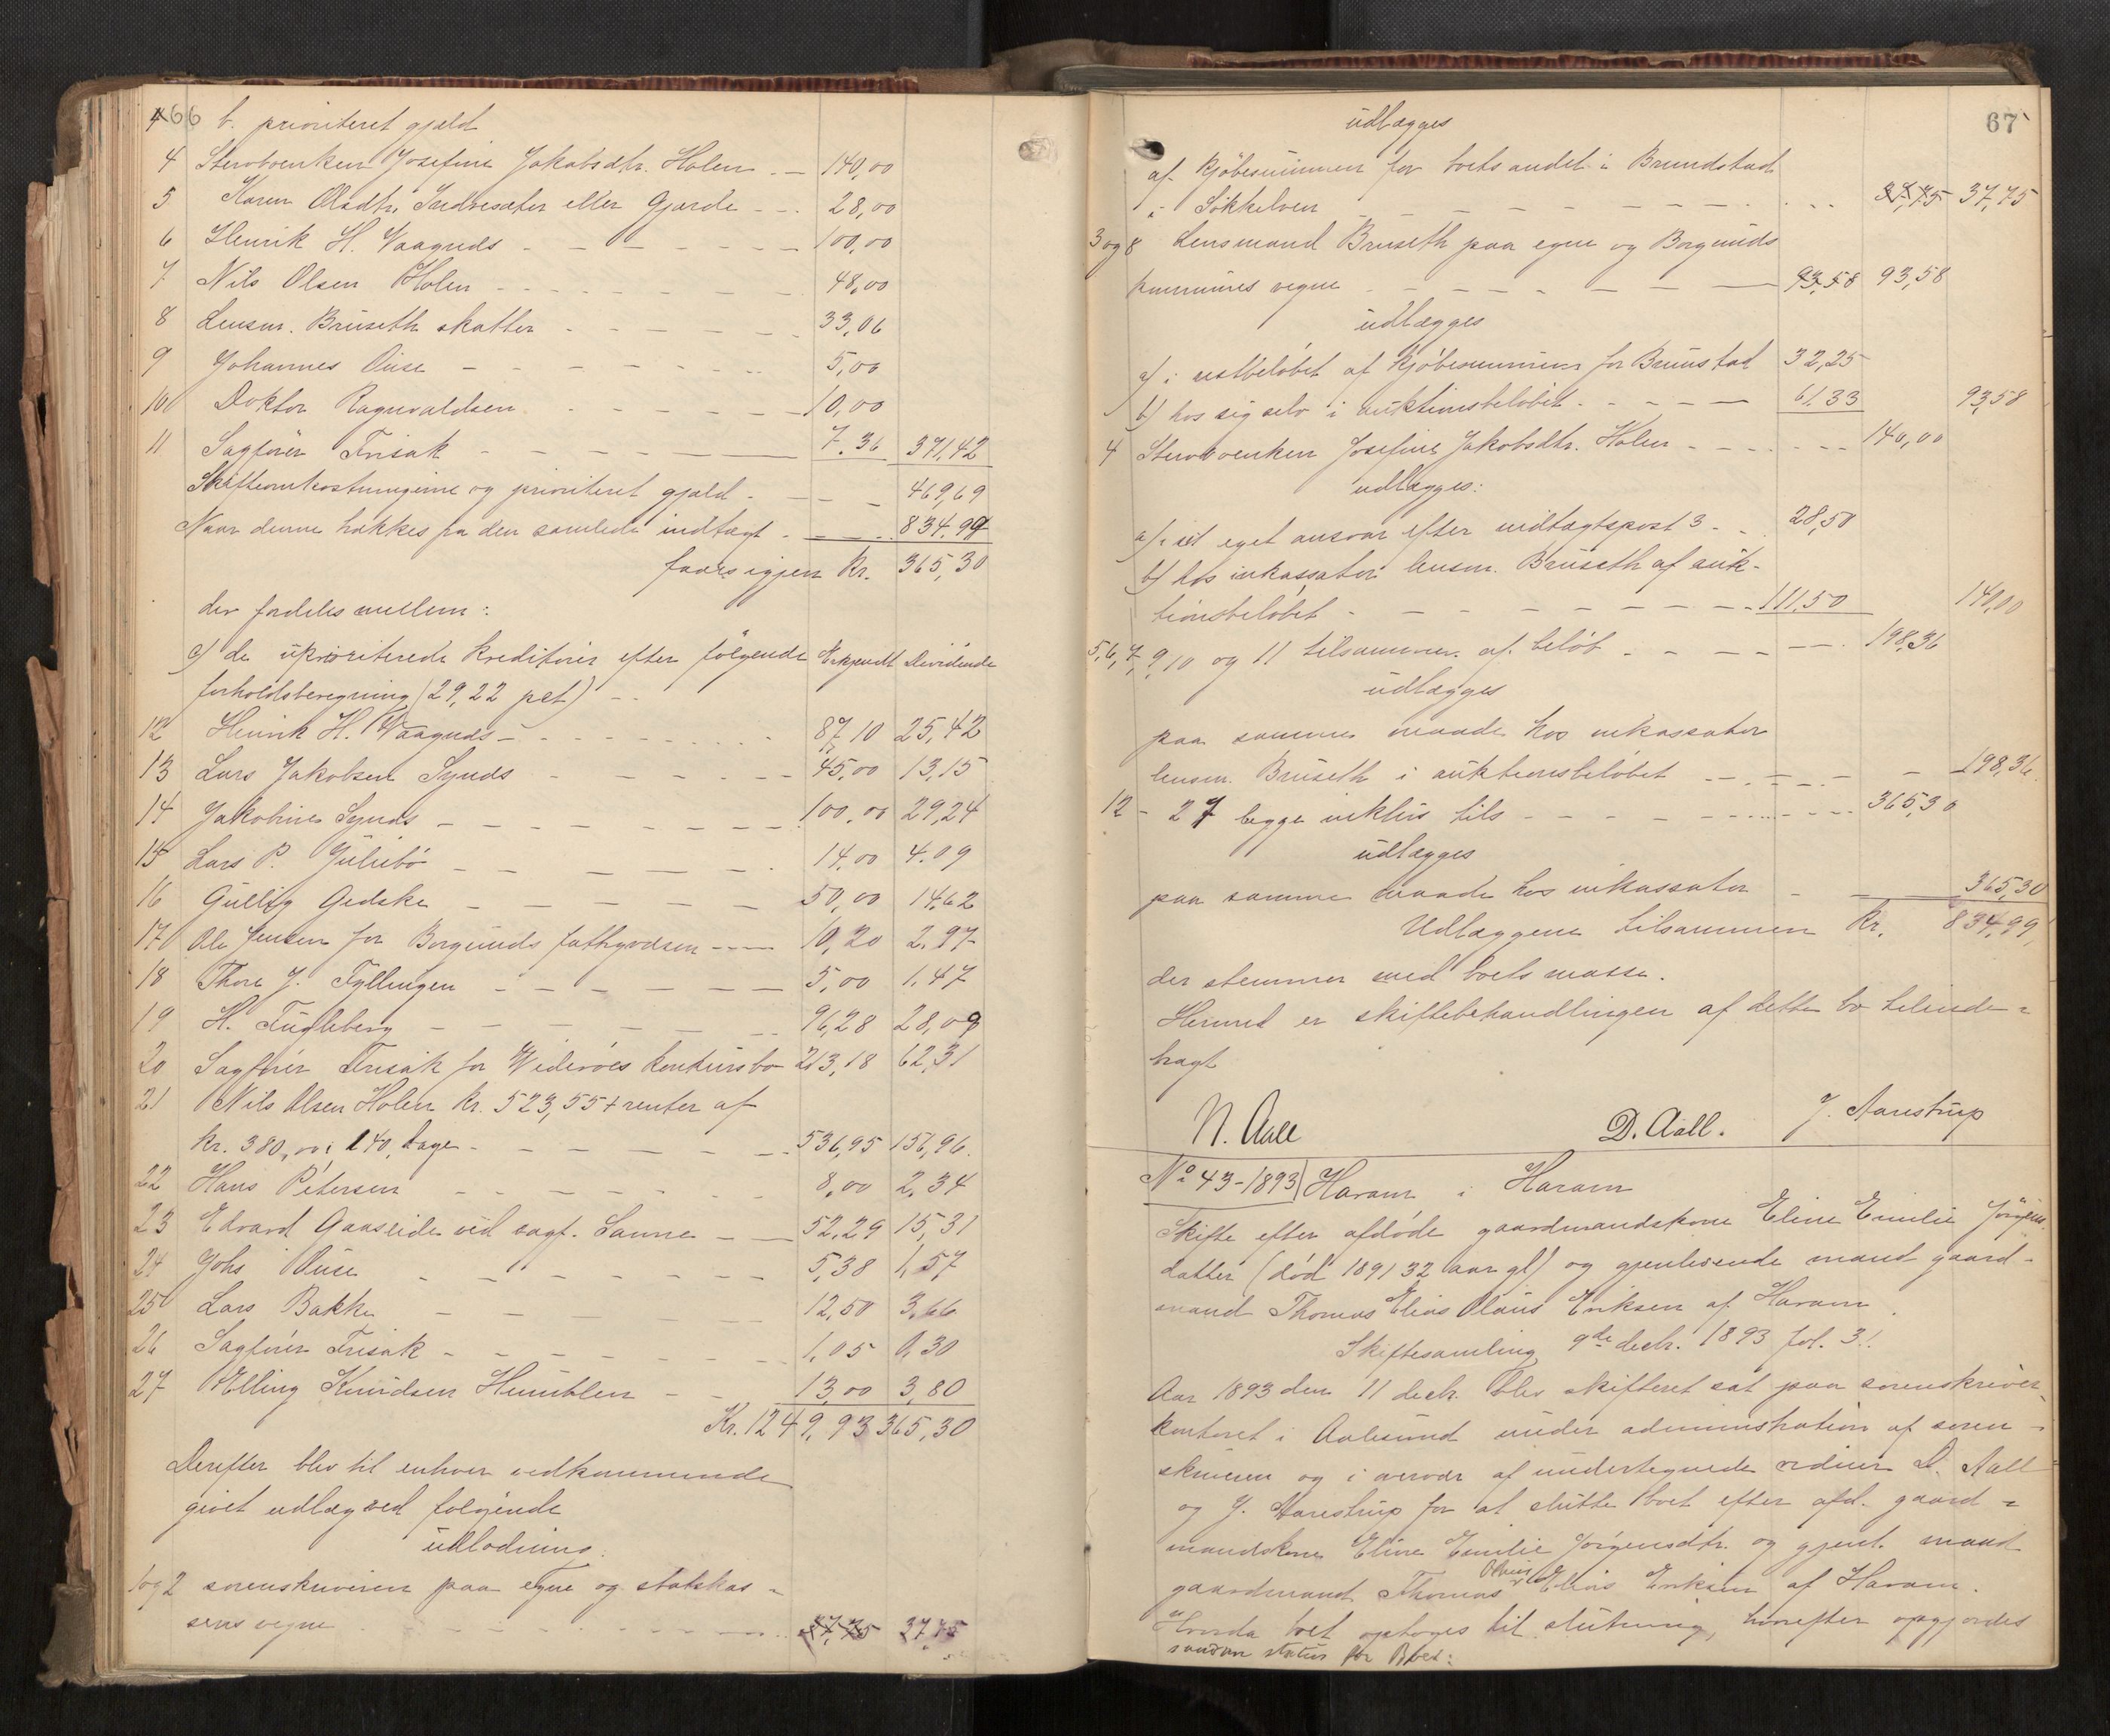 66 b. prioriteret gjæld
4 Stervboenken Josefine Jakobsdtr. Holen - 140,00
5 Karen Olsdtr. Sædvesæter eller Gjærde - - 28,00
6 Henrik H. Waagnæs - - - 100,00
7 Nils Olsen Holen - - - 48,00
8 Lensm. Bruseth skatter - - - 33,06
9 Johannes Ouse - - - 5,00
10 Doktor Ragnvaldsen - - - 10,00
11 Sagfører Frisak - - - 7.36 371,42
Skifteomkostningerne og prioriteret gjæld - - - 469,69
Naar denne trækkes fra den samlede indtægt - - - 834.99
faaes igjen Kr. 365,30
der fordeles mellem:
c) de uprioriterede kreditorer efter følgende Erkjendt Dividende
forholdsberegning (29,22 pct) - -
12 Henrik H. Waagnæs - - - 87,10 25,42
13 Lars Jakobsen Synæs - - - 45,00 13,15
14 Jakobine Synæs - - - 100,00 29,24
15 Lars P. - - - 14,00 4.09
16 Gedske - - - 50,00 14,62
17 Ole Jensen for Borgunds - - 10,20 2.97
18 Thore J. Fyllingen - - - 5,00 1.47
19 H. Fugleberg - - - 96,28 28,09
20 Sagfører Frisak for Widerøes konkursbo 213,18 62,31
21 Nils Olsen Holen kr. 523,55 + renter af
kr. 380,00 i 240 dage - - - 536,95 156,96
22 Hans Petersen - - - 8,00 2,34
23 Edvard Gaaseide ved sagf. Sanne - - 52,29 15,31
24 Johs Ouse - - - 5,38 1,57
25 Lars Bakke - - - 12,50 3,66
26 Sagfører Frisak - - - 1,05 0,30
27 Elling Knudsen Humblen - - 13,00 3,80
Kr. 1249,93 365,30
Derefter blev til enhver vedkommende
givet udlæg ved følgende
udlodning.
1 og 2 sorenskriveren paa egne og statskas-
sens vegne - - - 37,75 37.75
67
udlægges
af kjøbesummen for boets andel i Brundstad
i Søkkelven - - - 37,75 37,75
3 og 8 Lensmand Bruseth paa egne og Borgunds
kommunes vegne - - - 93,58 93,58
udlægges
a) i restbeløbet af kjøbesummen for Brunstad 32,25
b) hos sig selv i auktionsbeløbet - - - 61.33 93,58
4 Stervboenken Josefine Jakobsdtr. Holen - - - 140,00
udlægges:
a) i sit eget ansvar efter indtægtspost 3 - 28,50
b) hos inkassator lensm. Bruseth af auk-
tionsbeløbet - - - 111.50 140,00
5,6,7,9,10 og 11 tilsammen af beløb - - - 198,36
udlægges
paa samme maade hos inkassator
lensm. Bruseth i auktionsbeløbet - - - 198,36.
12 - 27 begge inklus. tils - - - 365,30
udlægges
paa samme maade hos inkassator - - 365,30
Udlæggene tilsammen Kr. 834,99,
der stemmer med boets masse.
Hermed er skiftebehandlingen af dette bo tilende-
bragt
N. Aall D. Aall. J. Aarestrup
No 43-1893 Haram i Haram
Skifte efter afdøde gaardmandskone Eline Emilie Jørgens-
datter (død 1891 32 aar gl) og gjenlevende mand gaard-
mand Thomas Elias Olaus Eriksen af Haram.
Skiftesamling 9de decbr. 1893 fol. 31
Aar 1893 den 11 decbr. blev skifteret sat paa sorenskriver-
kontoret i Aalesund under administration af soren-
skriveren og i overvær af undertegnede vidner D. Aall
og J. Aarestrup for at slutte boet efter afd. gaard-
mandskone Eline Emilie Jørgensdtr. og gjenl. mand
gaardmand Thomas Olaus Elias Eriksen af Haram.
boet optoges til slutning, hvorefter opgjordes
saadan status for Boet: